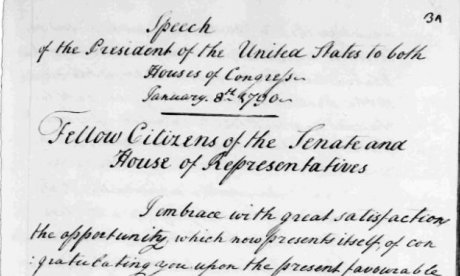 3A
Speech
of the President of the United States to both
Houses of Congress
January. 8th 1790
Fellow Citizens of the Senate and
House of Representatives
I embrace with great satisfaction
the opportunity, which now presents itself, of con
:gratulating you upon the present favourable